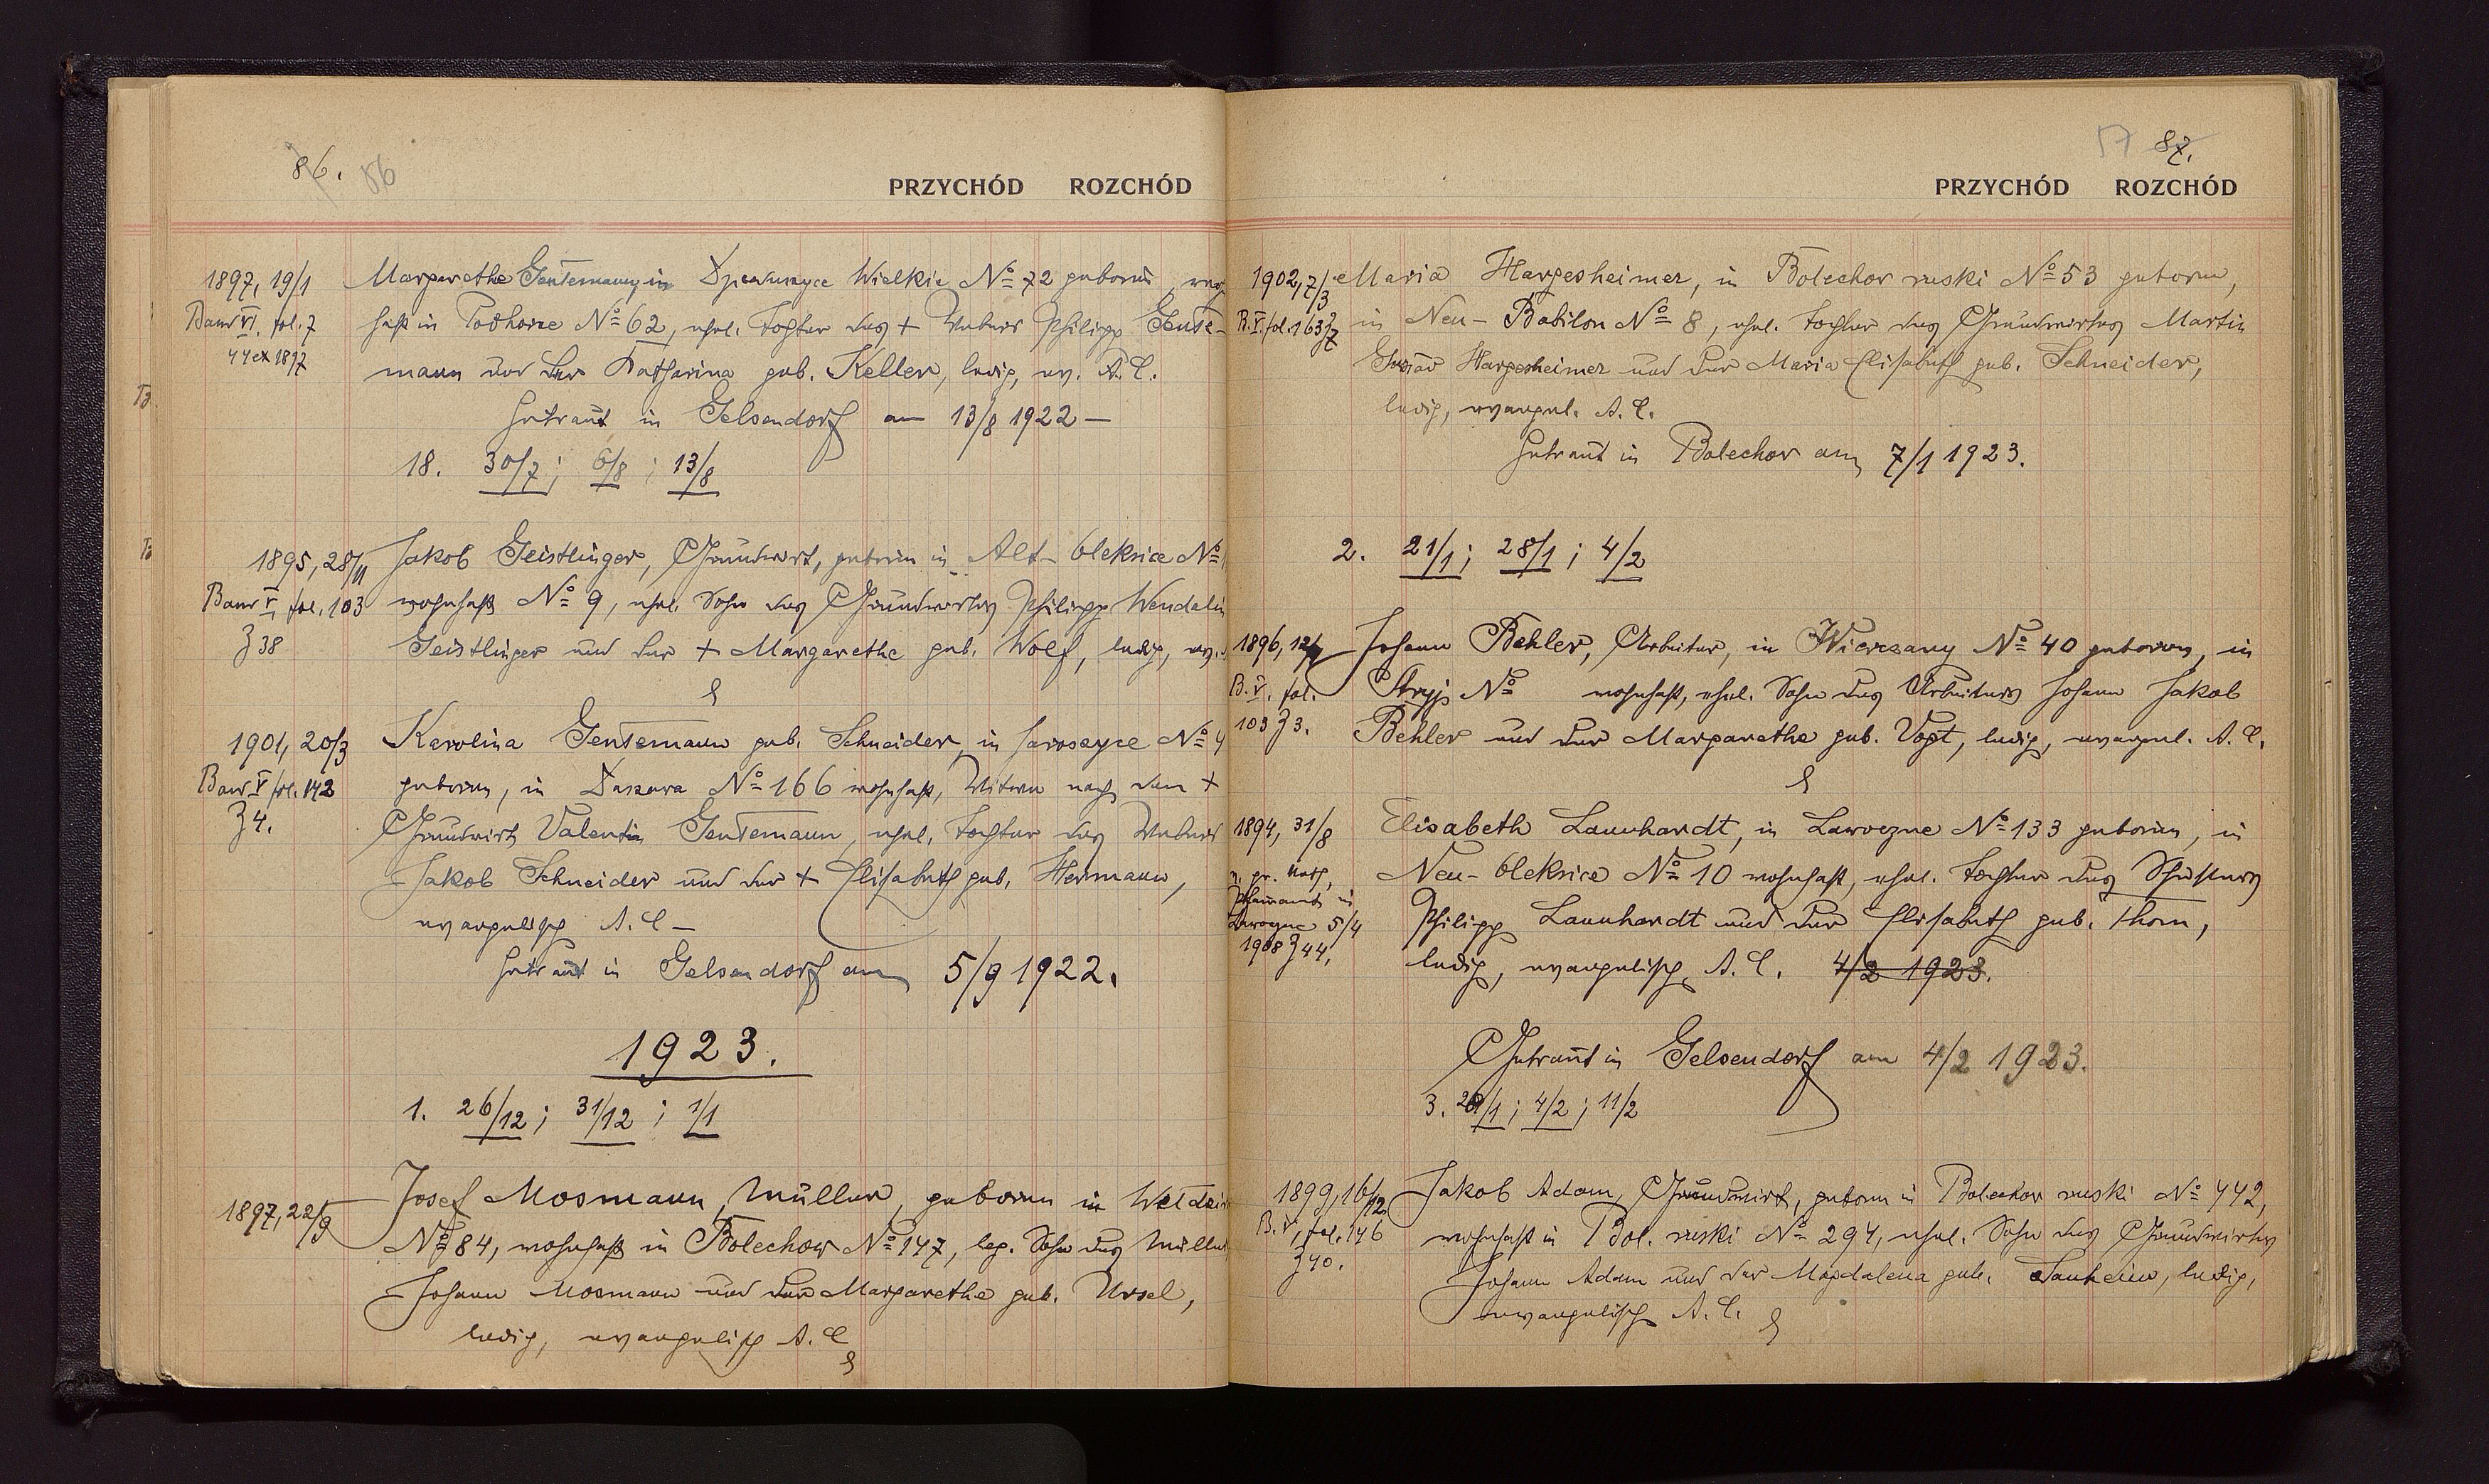 86. 86
PRZYCHÓD ROZCHÓD
1897, 19/1 Margarethe Gentemann in Dzieduszyce Wielkie No 72 geboren, wohn-
Band VI. fol. 7 haft in Podhorce No 62, ehel. Tochter des + Webers Philipp Gente-
44 ex 1897 mann und der Katharina geb. Keller, ledig, ev. A. C.
Getraut in Gelsendorf am 13/8 1922 —
18. 30/7; 6/8; 13/8
1895, 28/11 Jakob Geistlinger, Grundwirt, geboren in Alt-Oleksice No
Band V, fol. 103 wohnhaft No 9, ehel. Sohn des Grundwirtes Philipp Wendelin
Z 38 Geistlinger und der + Margarethe geb. Wolf, ledig, ev.
&
1901, 20/3 Karolina Gentemann geb. Schneider, in Jaroszyce No 4
Band V fol. 142 geboren, in Daszawa No 166 wohnhaft, Witwe nach dem +
Z 4. Grundwirt Valentin Gentemann, ehel. Tochter des Webers
Jakob Schneider und der + Elisabeth geb. Hermann,
evangelisch A. C —
Getraut in Gelsendorf am 5/9 1922.
1923.
1. 26/12; 31/12; 1/1
1897, 22/9 Josef Mosmann, Müller, geboren in Weldzi
No 84, wohnhaft in Bolechow No 147, leg. Sohn des Müller
Johann Mosmann und der Margarethe geb. Ursel,
ledig, evangelisch A. C
&
87.
PRZYCHÓD ROZCHÓD
1902, 7/3 Maria Hargesheimer, in Bolechov ruski No 53 geboren,
B. V. fol. 163 Z 7 in Neu-Babilon No 8, ehel. Tochter des Grundwirtes Martin
Hargesheimer und der Maria Elisabeth geb. Schneider,
ledig, evangel. A. C.
Getraut in Bolechov am 7/1 1923.
2. 21/1; 28/1; 4/2
1896, Johann Behler, Arbeiter, in Wierczany No 40 geboren, in
B. V. fol. Stryj No wohnhaft, ehel. Sohn des Arbeiters Johann Jakob
103 Z 3. Behler und der Margarethe geb. Vogt, ledig, evangel. A. C.
&
1894, 31/8 Elisabeth Launhardt, in Lawoczne No 133 geboren, in
Neu-Oleksice No 10 wohnhaft, ehel. Tochter des Schusters
Pfarramt in Philipp Launhardt und der Elisabeth geb. Thom,
Lawoczne 5/4
1908 Z 44, ledig, evangelisch A. C. 4/2 1923.
Getraut in Gelsendorf am 4/2 1923.
3. 28/1; 4/2; 11/2
1899, 16/12 Jakob Adam, Grundwirt, geboren in Bolechov ruski No 442,
B. V, fol. 146 wohnhaft in Bol. ruski No 294, ehel. Sohn des Grundwirtes
Z 40. Johann Adam und der Magdalena geb. Manheim, ledig,
evangelisch A. C. &